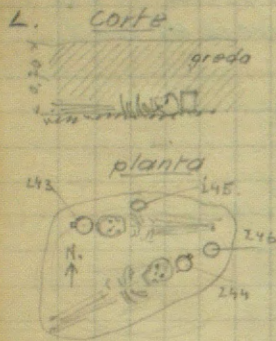 L. corte
0,70 m
greda
planta
243
245.
246
N.
244